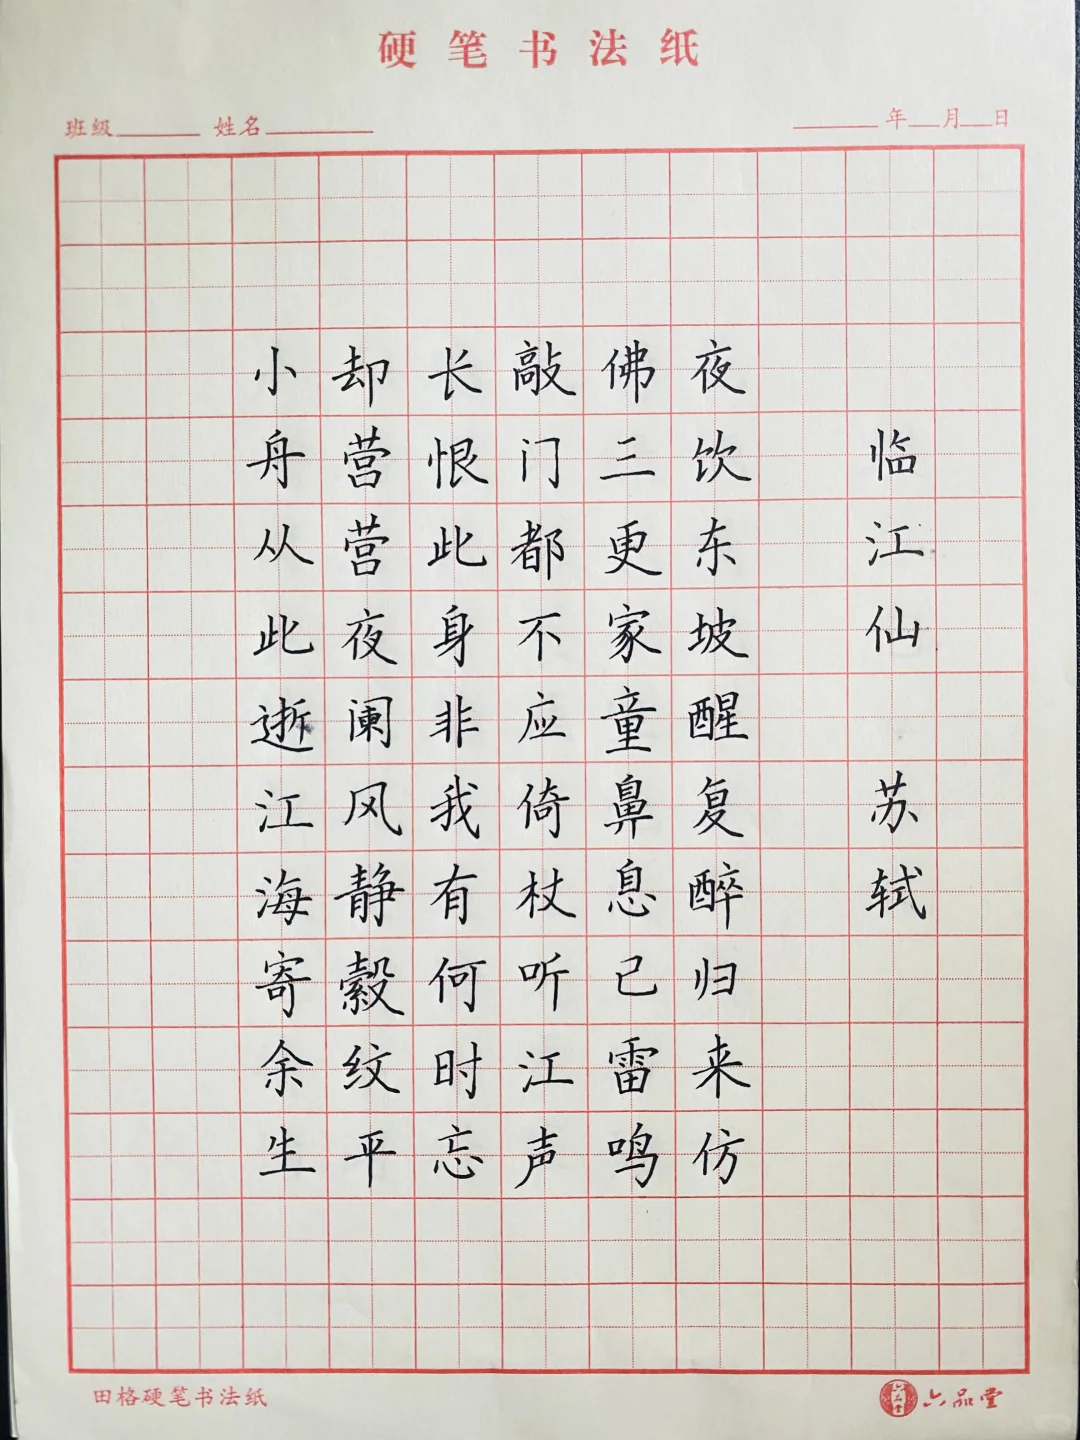 硬笔书法纸
班级 姓名 年 月 日
临江仙 苏轼
夜饮东坡醒复醉归来仿
佛三更家童鼻息已雷鸣
敲门都不应倚杖听江声
长恨此身非我有何时忘
却营营夜阑风静縠纹平
小舟从此逝江海寄余生
田格硬笔书法纸
六品堂